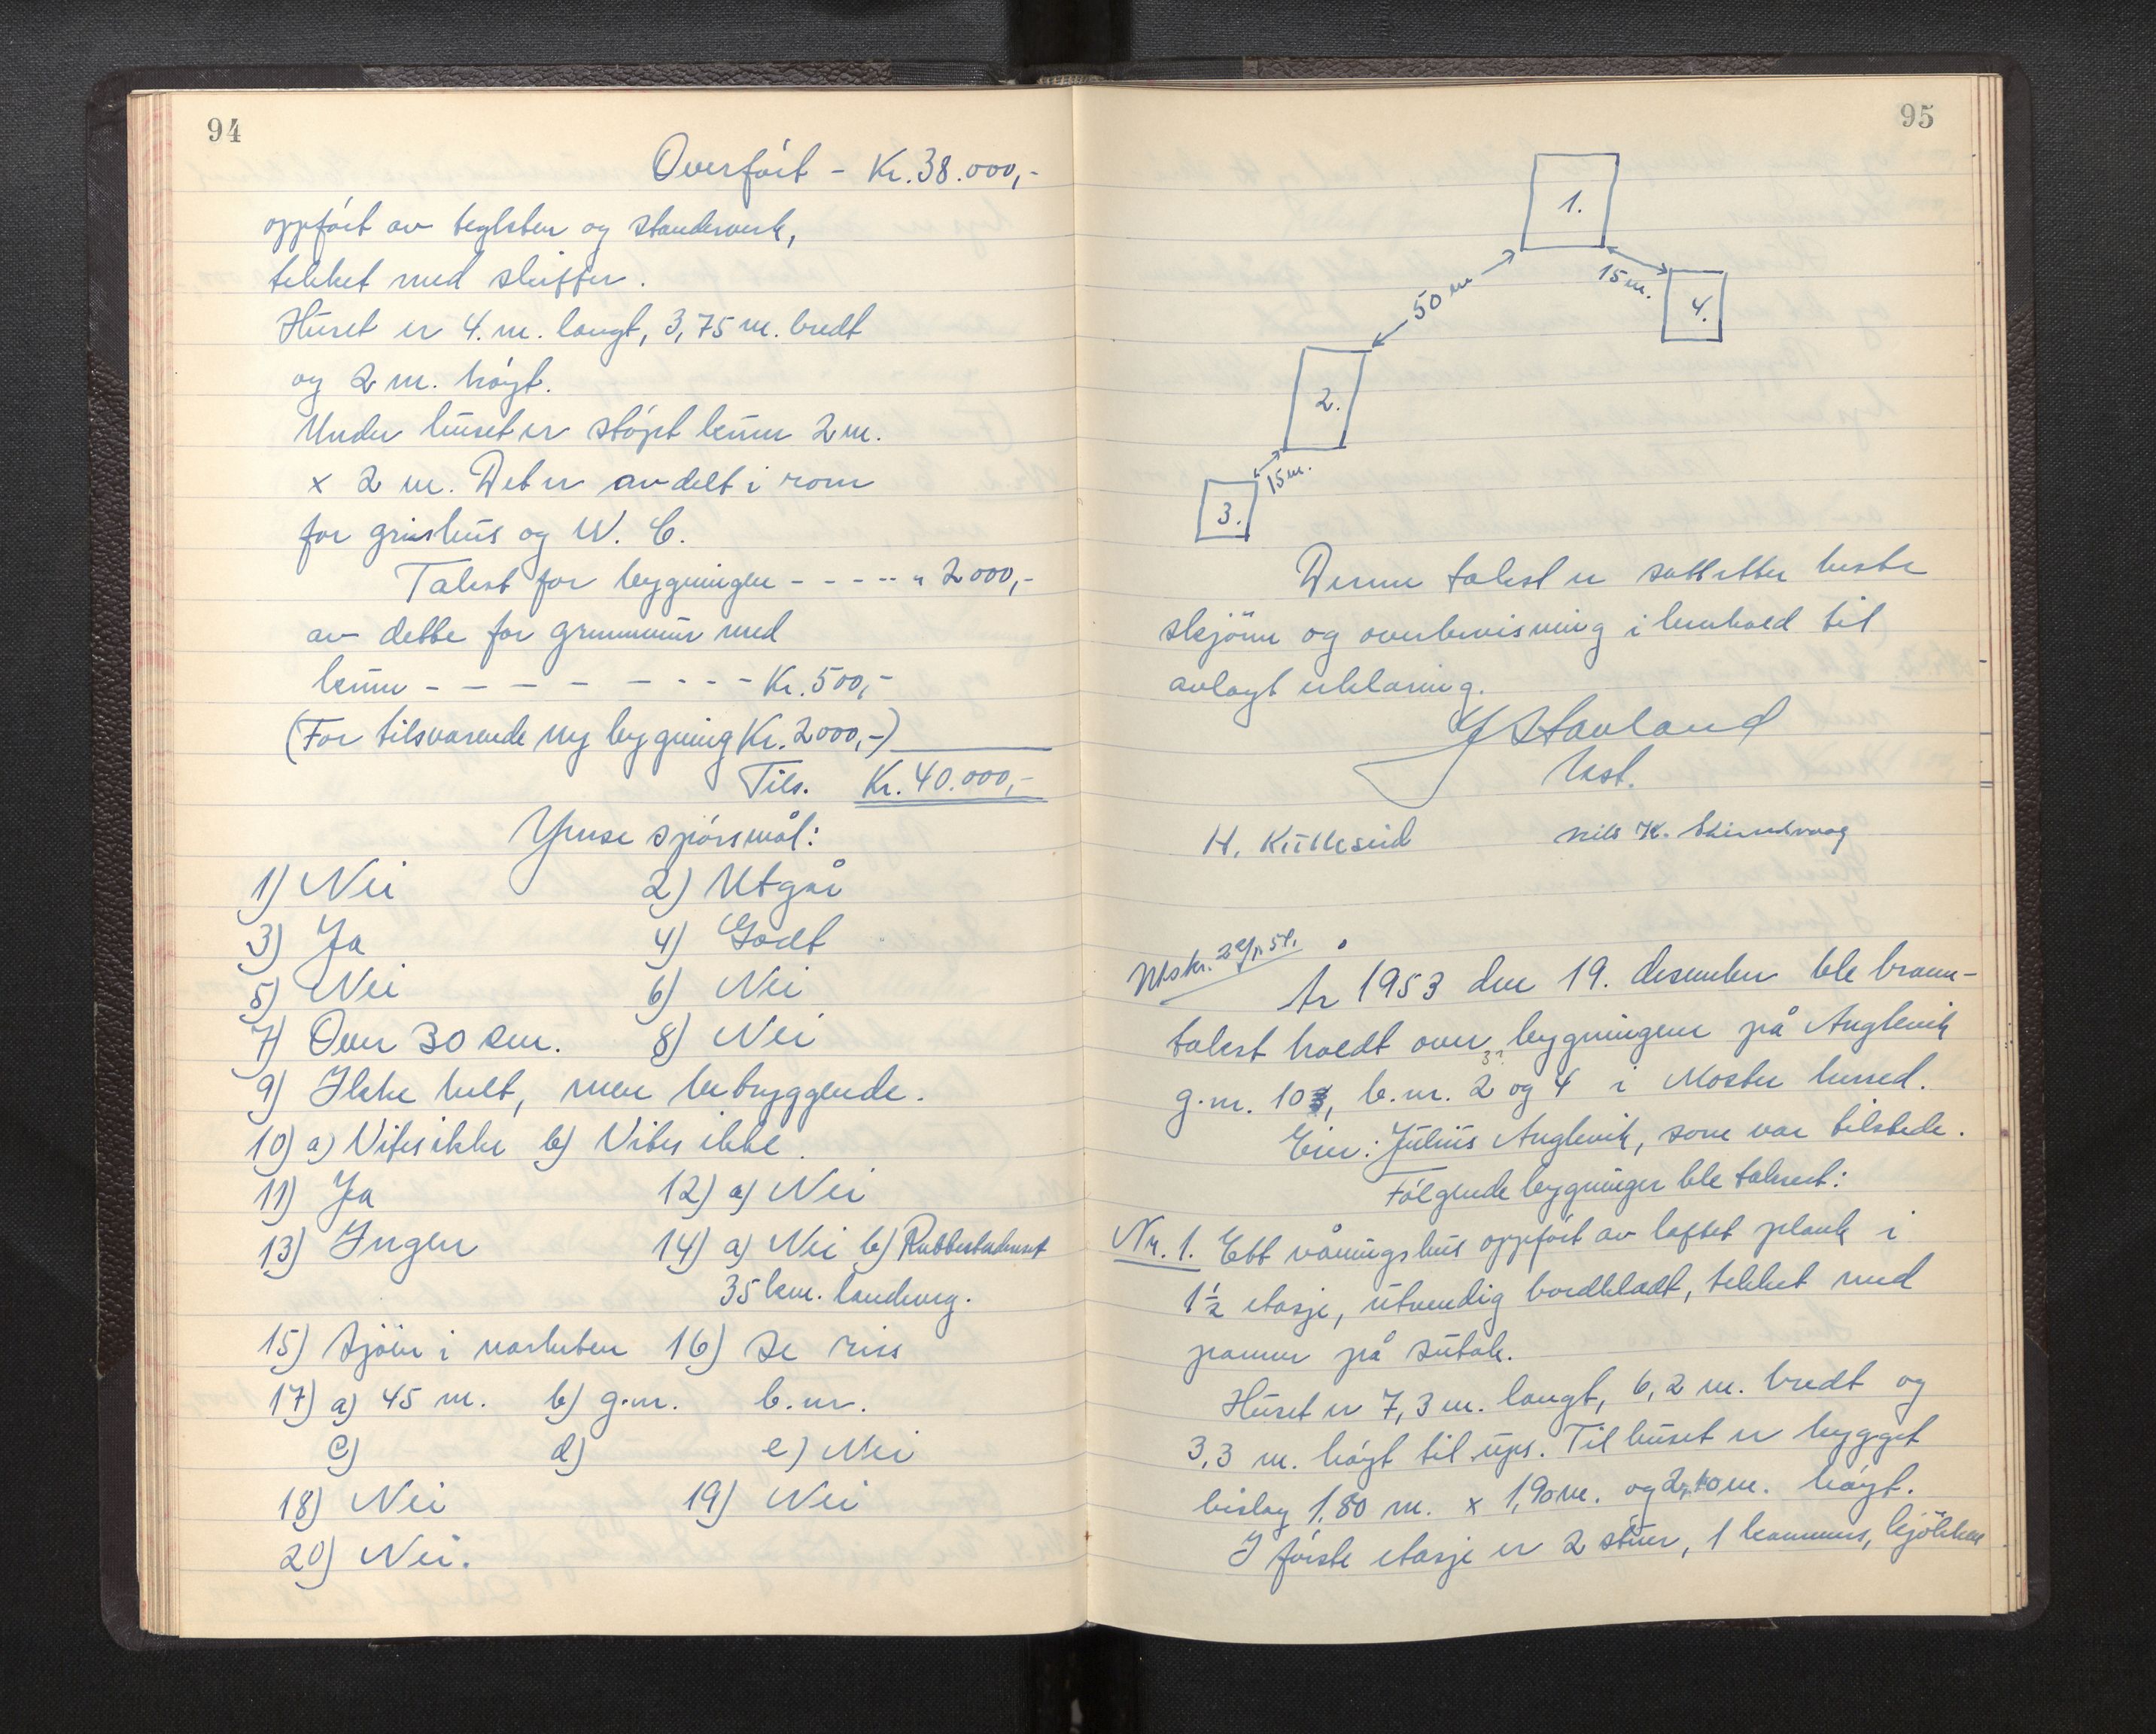 94
Overført - Kr. 38.000,-
oppført av teglsten og standerverk,
tekket med skiffer.
Huset er 4. m. langt, 3,75 m. bredt
og 2 m. høgt.
Under huset er støpt kum 2 m.
x 2 m. Det er avdelt i rom
for grishus og W. C.
Takst for bygningen - - - - - " 2000,-
av dette for grunnmur med
kum - - - - - - - - - Kr. 500,-
(For tilsvarende ny bygning Kr. 2000,-)
Tils. Kr. 40.000,-
Ymse spørsmål:
1) Nei 2) Utgår
3) Ja 4) Godt
5) Nei 6) Nei
7) Over 30 cm. 8) Nei
9) Ikke helt, men betryggende.
10) a) Vites ikke b) Vites ikke.
11) Ja 12) a) Nei
13) Ingen 14) a) Nei b) Rubbestadneset
35 km. landveg.
15) Sjøen i nærheten 16) Se riss
17) a) 45 m. b) g.nr. b.nr.
c) d) e) Nei
18) Nei 19) Nei
20) Nei.
95
1.
50 m
15 m.
4.
2.
15 m.
3.
Denne takst er satt etter beste
skjønn og overbevisning i henhold til
avlagt erklæring.
J Stavland
lest.
H. Kulleseid Nils K.
Utskr.
År 1953 den 19. desember ble brann-
takst holdt over bygningene på Anglevik
g.nr. 103, b.nr. 2 og 4 i Moster herred.
Eier: Julius Anglevik, som var tilstede.
Følgende bygninger ble taksert:
Nr. 1. Ett våningshus oppført av laftet plank i
1½ etasje, utvendig bordkladt, tekket med
panner på sutak.
Huset er 7,3 m. langt, 6,2 m. bredt og
3,3 m. høgt til ups. Til huset er bygget
bislag 1,80 m. x 1,90 m. og 2,10 m. høgt.
I første etasje er 2 stuer, 1 kammers, kjøkken